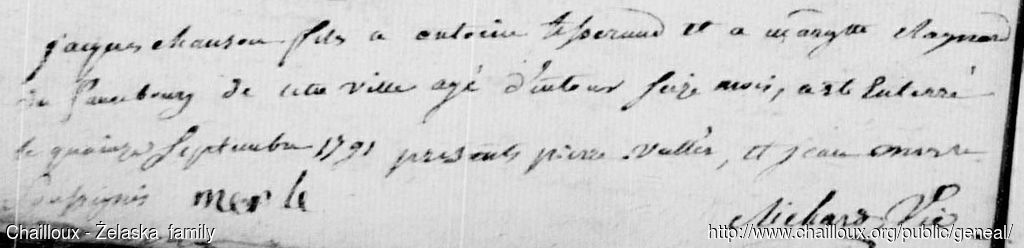 jacques chanson fils a antoine et a margtte Raynard
du fauxbourg de cette ville agé d'entour seize mois, a eté Enterré
le quinze Septembre 1791 presents pierre Vallès, et jean
soussignés merle
Richard Vic
Chailloux - Żelaska family
http://www.chailloux.org/public/geneal/